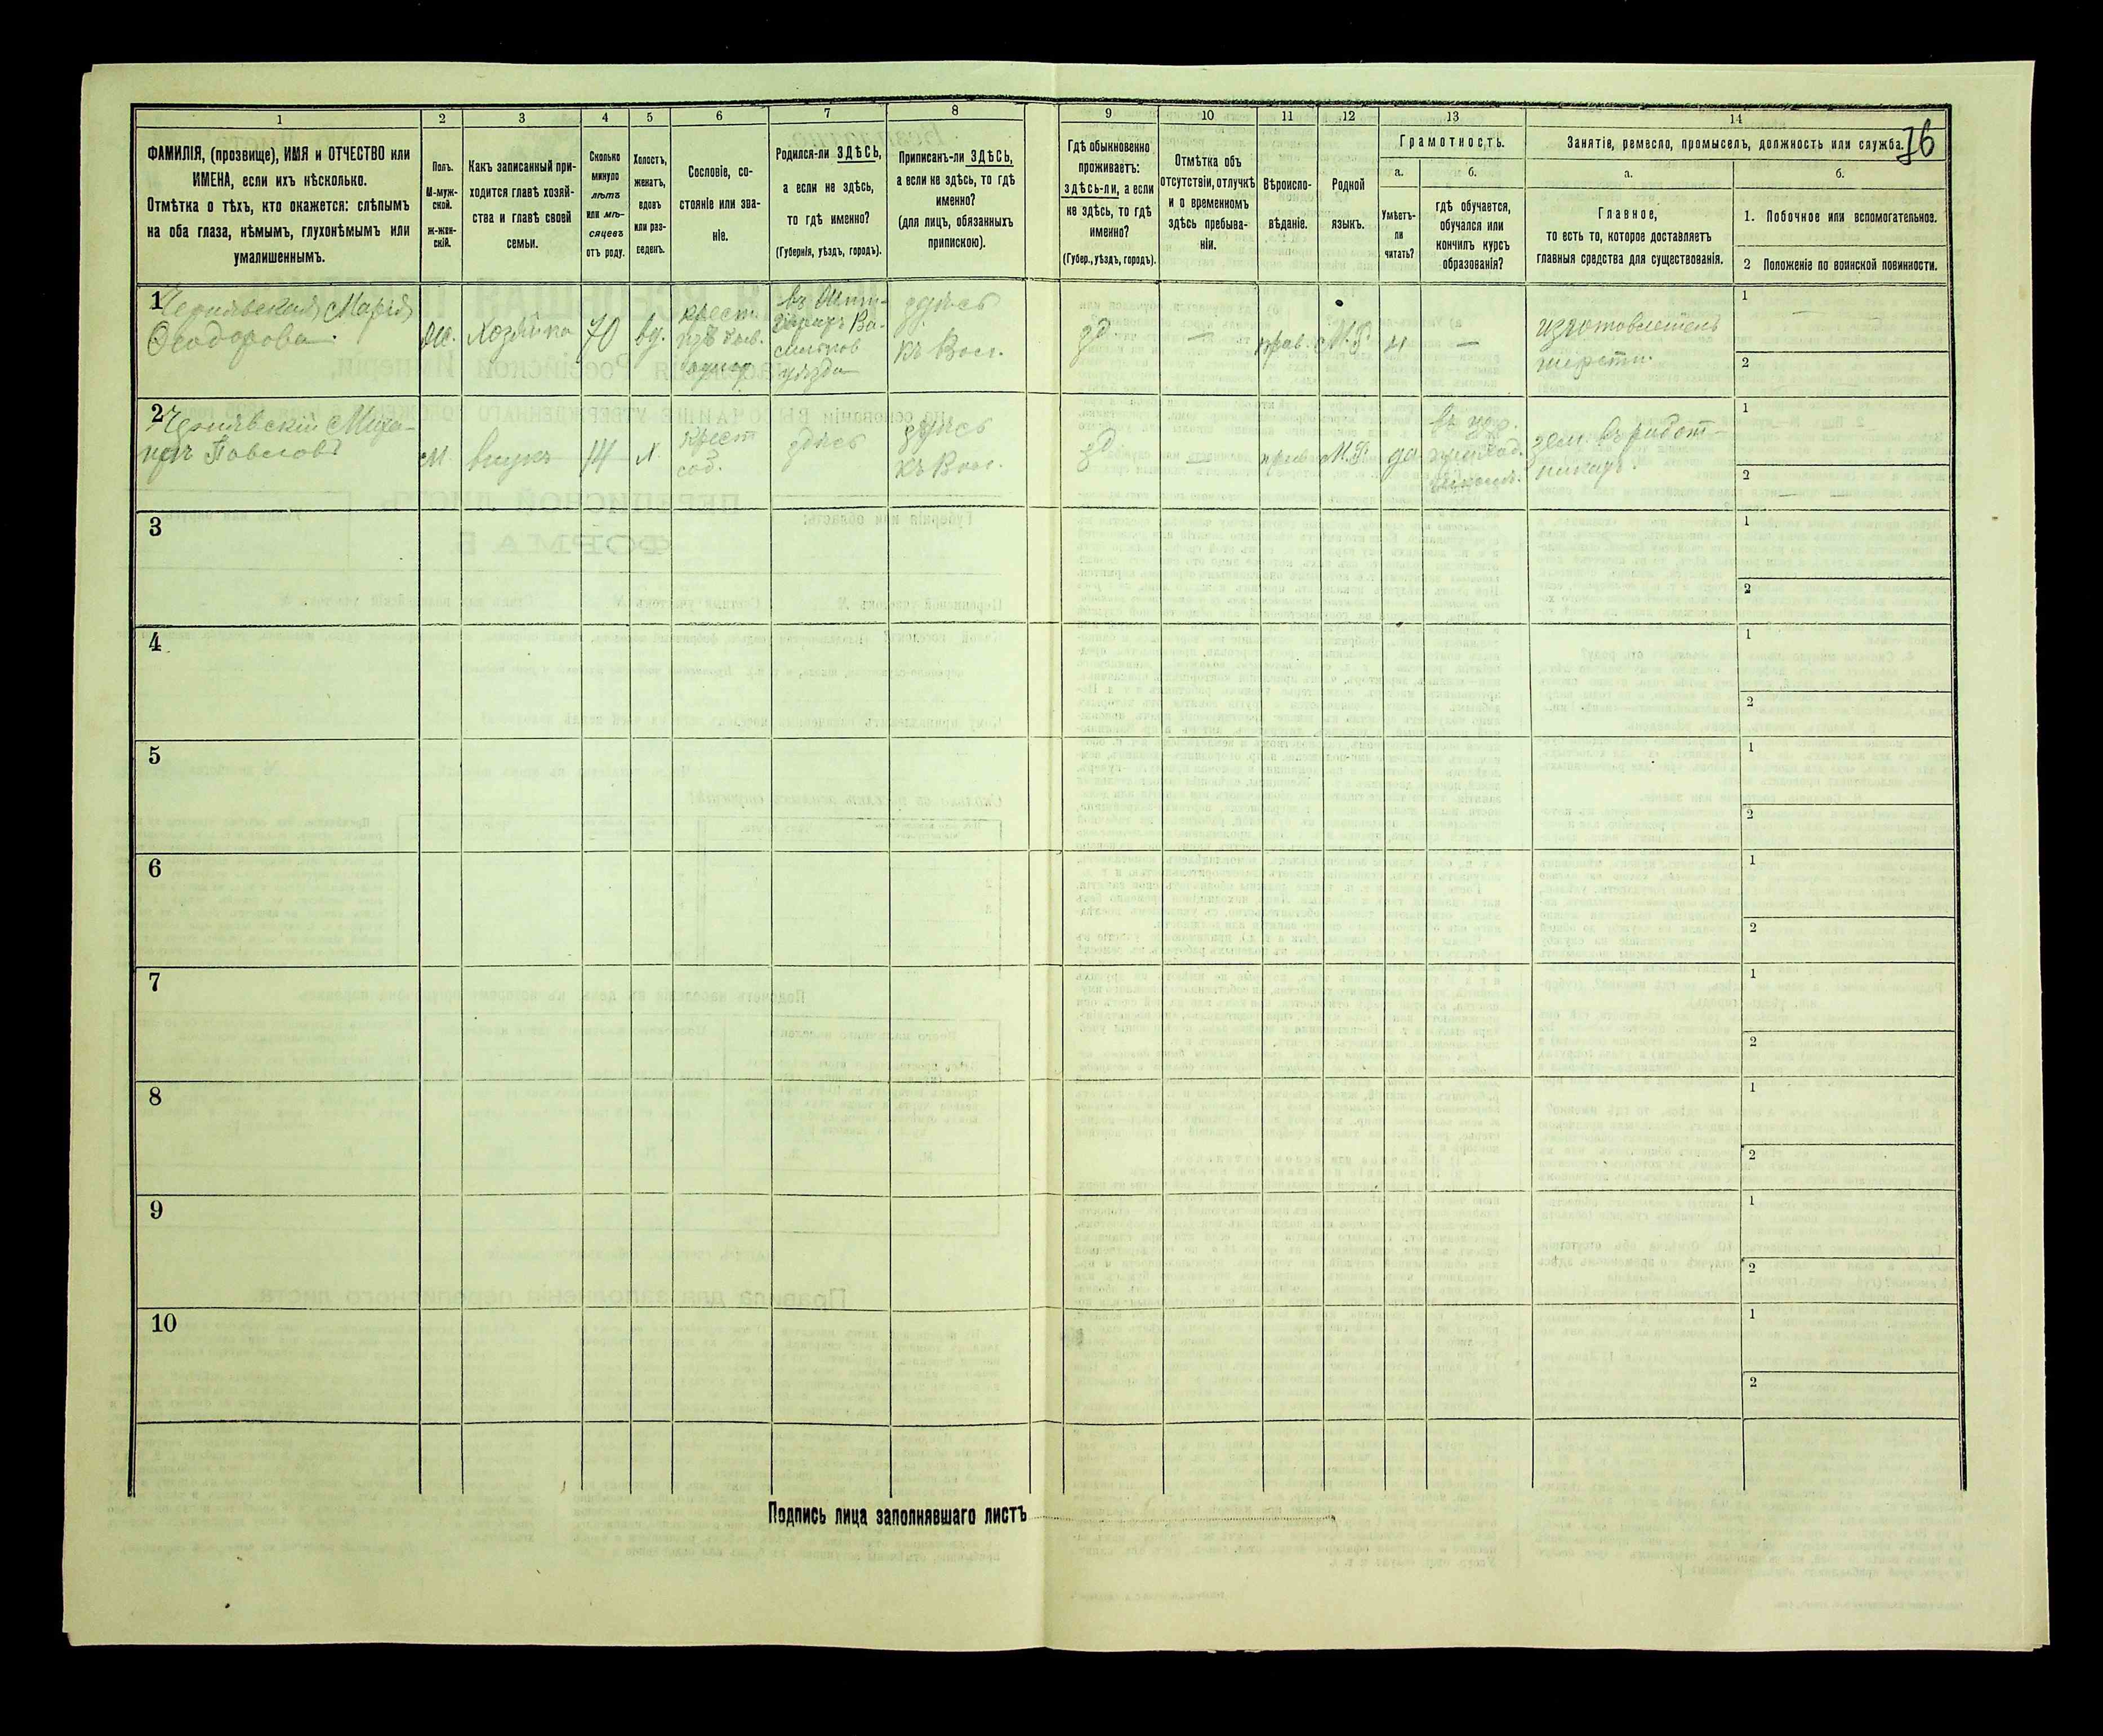 1
2
3
4
5
6
7
8
9
10
11
12
13
14
76
ФАМИЛІЯ, (прозвище), ИМЯ и ОТЧЕСТВО или
ИМЕНА, если ихъ нѣсколько.
Отмѣтка о тѣхъ, кто окажется: слѣпымъ
на оба глаза, нѣмымъ, глухонѣмымъ или
умалишеннымъ.
Полъ.
М-муж-
ской.
ж-жен-
скій.
Какъ записанный при-
ходится главѣ хозяй-
ства и главѣ своей
семьи.
Сколько
минуло
лѣтъ
или мѣ-
сяцевъ
отъ роду.
Холостъ,
женатъ,
вдовъ
или раз-
веденъ.
Сословіе, со-
стояніе или зва-
ніе.
Родился-ли ЗДѢСЬ,
а если не здѣсь,
то гдѣ именно?
(Губернія, уѣздъ, городъ).
Приписанъ-ли ЗДѢСЬ,
а если не здѣсь, то гдѣ
именно?
(для лицъ, обязанныхъ
припискою).
Гдѣ обыкновенно
проживаетъ:
здѣсь-ли, а если
не здѣсь, то гдѣ
именно?
(Губер., уѣздъ, городъ).
Отмѣтка объ
отсутствіи, отлучкѣ
и о временномъ
здѣсь пребыва-
ніи.
Вѣроиспо-
вѣданіе.
Родной
языкъ.
Грамотность.
а.
Умѣетъ-
ли
читать?
б.
гдѣ обучается,
обучался или
кончилъ курсъ
образованія?
Занятіе, ремесло, промыселъ, должность или служба.
а.
Главное,
то есть то, которое доставляетъ
главныя средства для существованія.
б.
1. Побочное или вспомогательное.
2 Положеніе по воинской повинности.
1
Чернявская Марія
Ѳеодорова.
Ж.
Хозяйка
70
вд.
крест.
Ва-
сильков
уѣзда
здѣсь
къ Вол.
зд.
—
прав.
М.Р.
н
—
шерсти.
1
— —
2
2
Чернявскій Миха-
илъ Павловъ
М.
внукъ
14
х.
крест
соб.
здѣсь
здѣсь
къ Вол.
зд.
—
прав
М.Р.
да
въ
приход.
школѣ.
зем. въ работ-
никахъ.
1
2
— —
3
1
2
4
1
2
5
1
2
6
1
2
7
1
2
8
1
2
9
1
2
10
1
2
Подпись лица заполнявшаго листъ